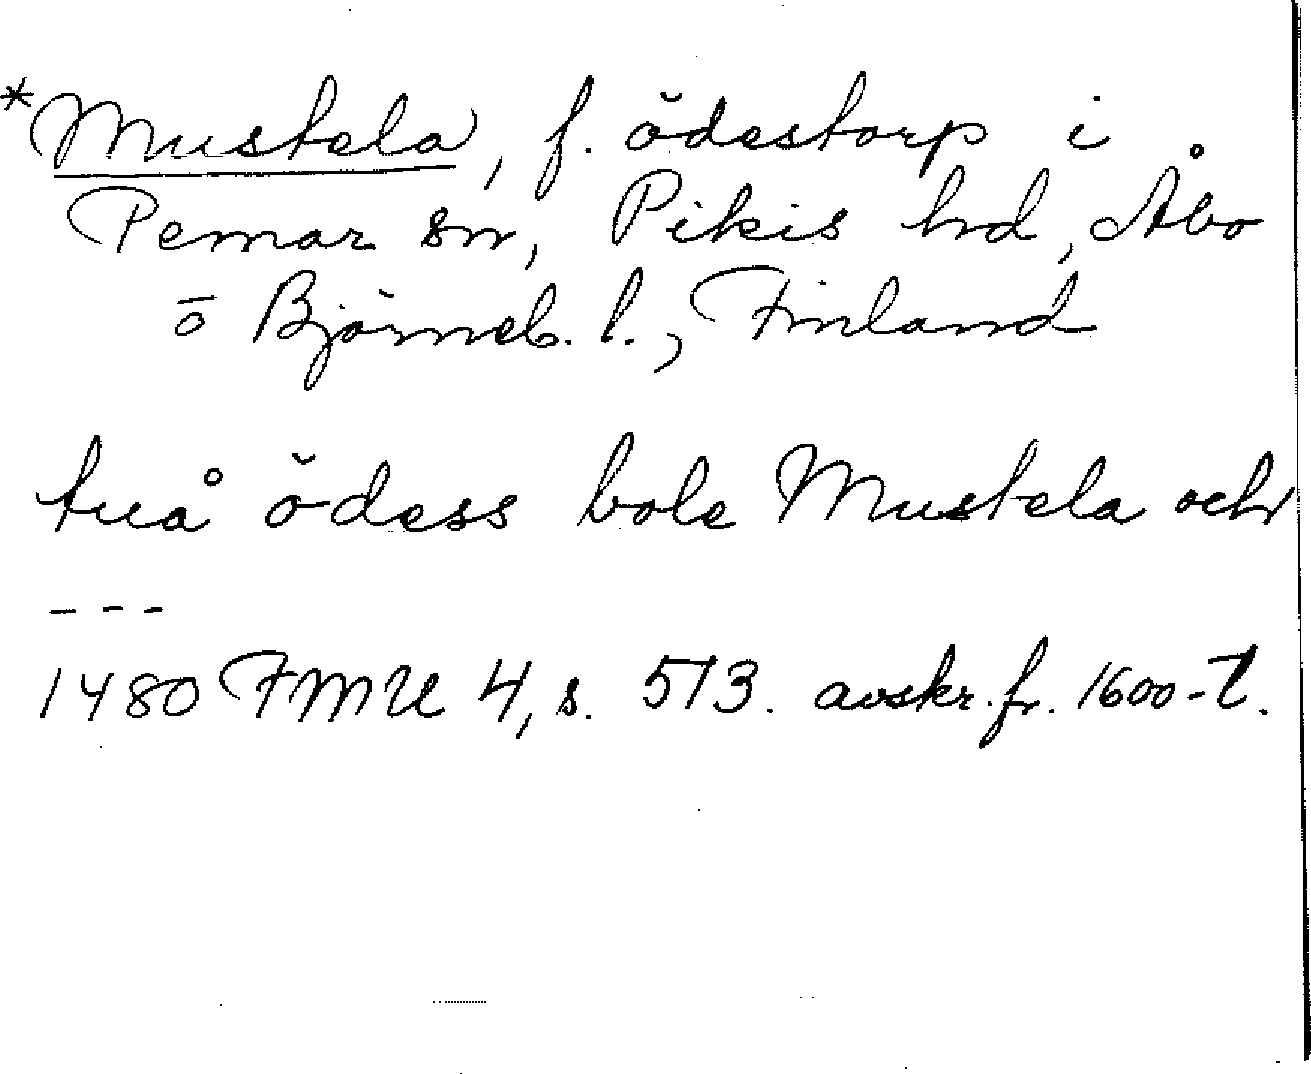 *Mustela, f. ödestorp i
Pemar sn, Pikis hd, Åbo
o Björneb. l., Finland
tuå ödess bole Mustela och
---
1480 FMU 4, s. 513. avskr. fr. 1600-t.